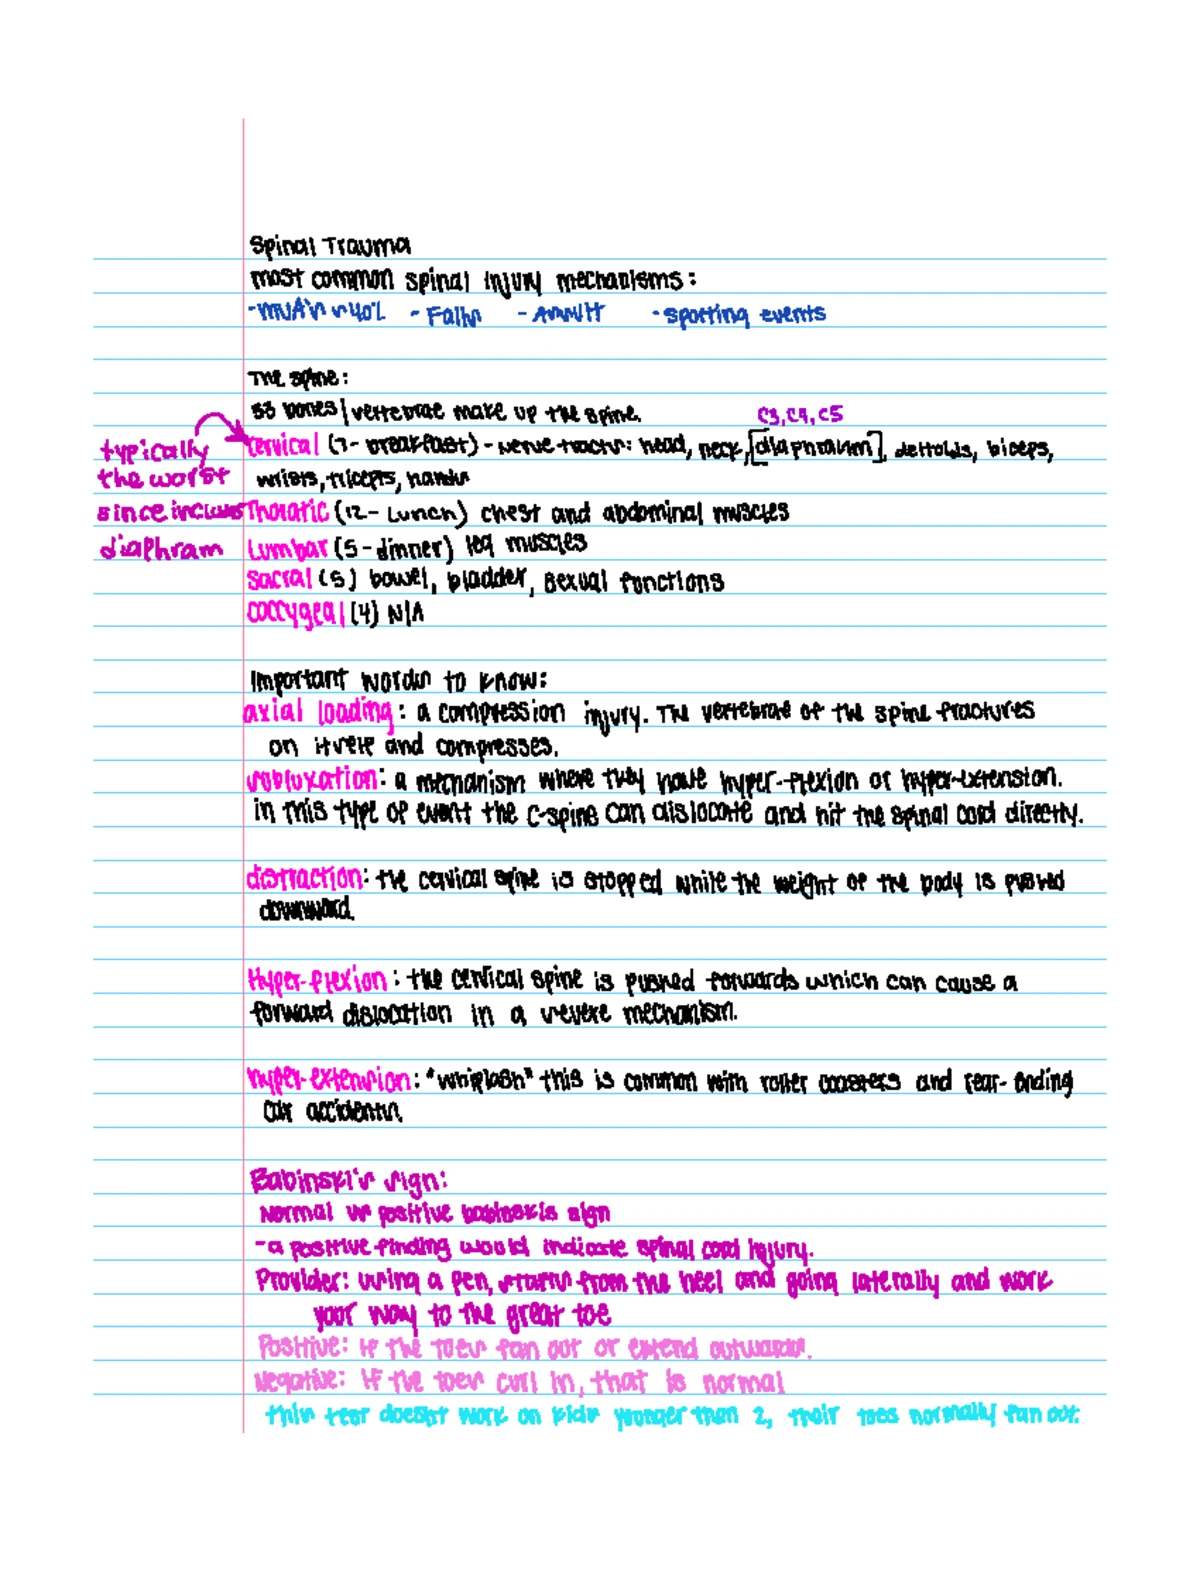 Spinal Trauma
most common spinal injury mechanisms:
-MVA's ~40% - Falls - Assault - sporting events
The spine:
33 bones/vertebrae make up the spine.
C3, C4, C5
typically
cervical (7- breakfast) - nerve tracts: head, neck, [diaphragm], deltoids, biceps,
the worst
wrists, triceps, hands
since includes
Thoratic (12- Lunch) chest and abdominal muscles
diaphram
Lumbar (5-dinner) leg muscles
Sacral (5) bowel, bladder, sexual functions
coccygeal (4) N/A
Important words to know:
axial loading: a compression injury. The vertebrae of the spine fractures
on itself and compresses.
subluxation: a mechanism where they have hyper-flexion or hyper-extension.
in this type of event the c-spine can dislocate and hit the spinal cord directly.
distraction: the cervical spine is stopped while the weight of the body is pushed
downward.
Hyper-flexion: the cervical spine is pushed forwards which can cause a
forward dislocation in a severe mechanism.
hyper-extension: "whiplash" this is common with roller coasters and rear-ending
car accidents.
Babinski's sign:
Normal vs positive babinskis sign
-a positive finding would indicate spinal cord injury.
Provider: using a pen, starts from the heel and going laterally and work
your way to the great toe
Positive: if the toes fan out or extend outwards.
Negative: if the toes curl in, that is normal
this test doesn't work on kids younger than 2, their toes normally fan out.